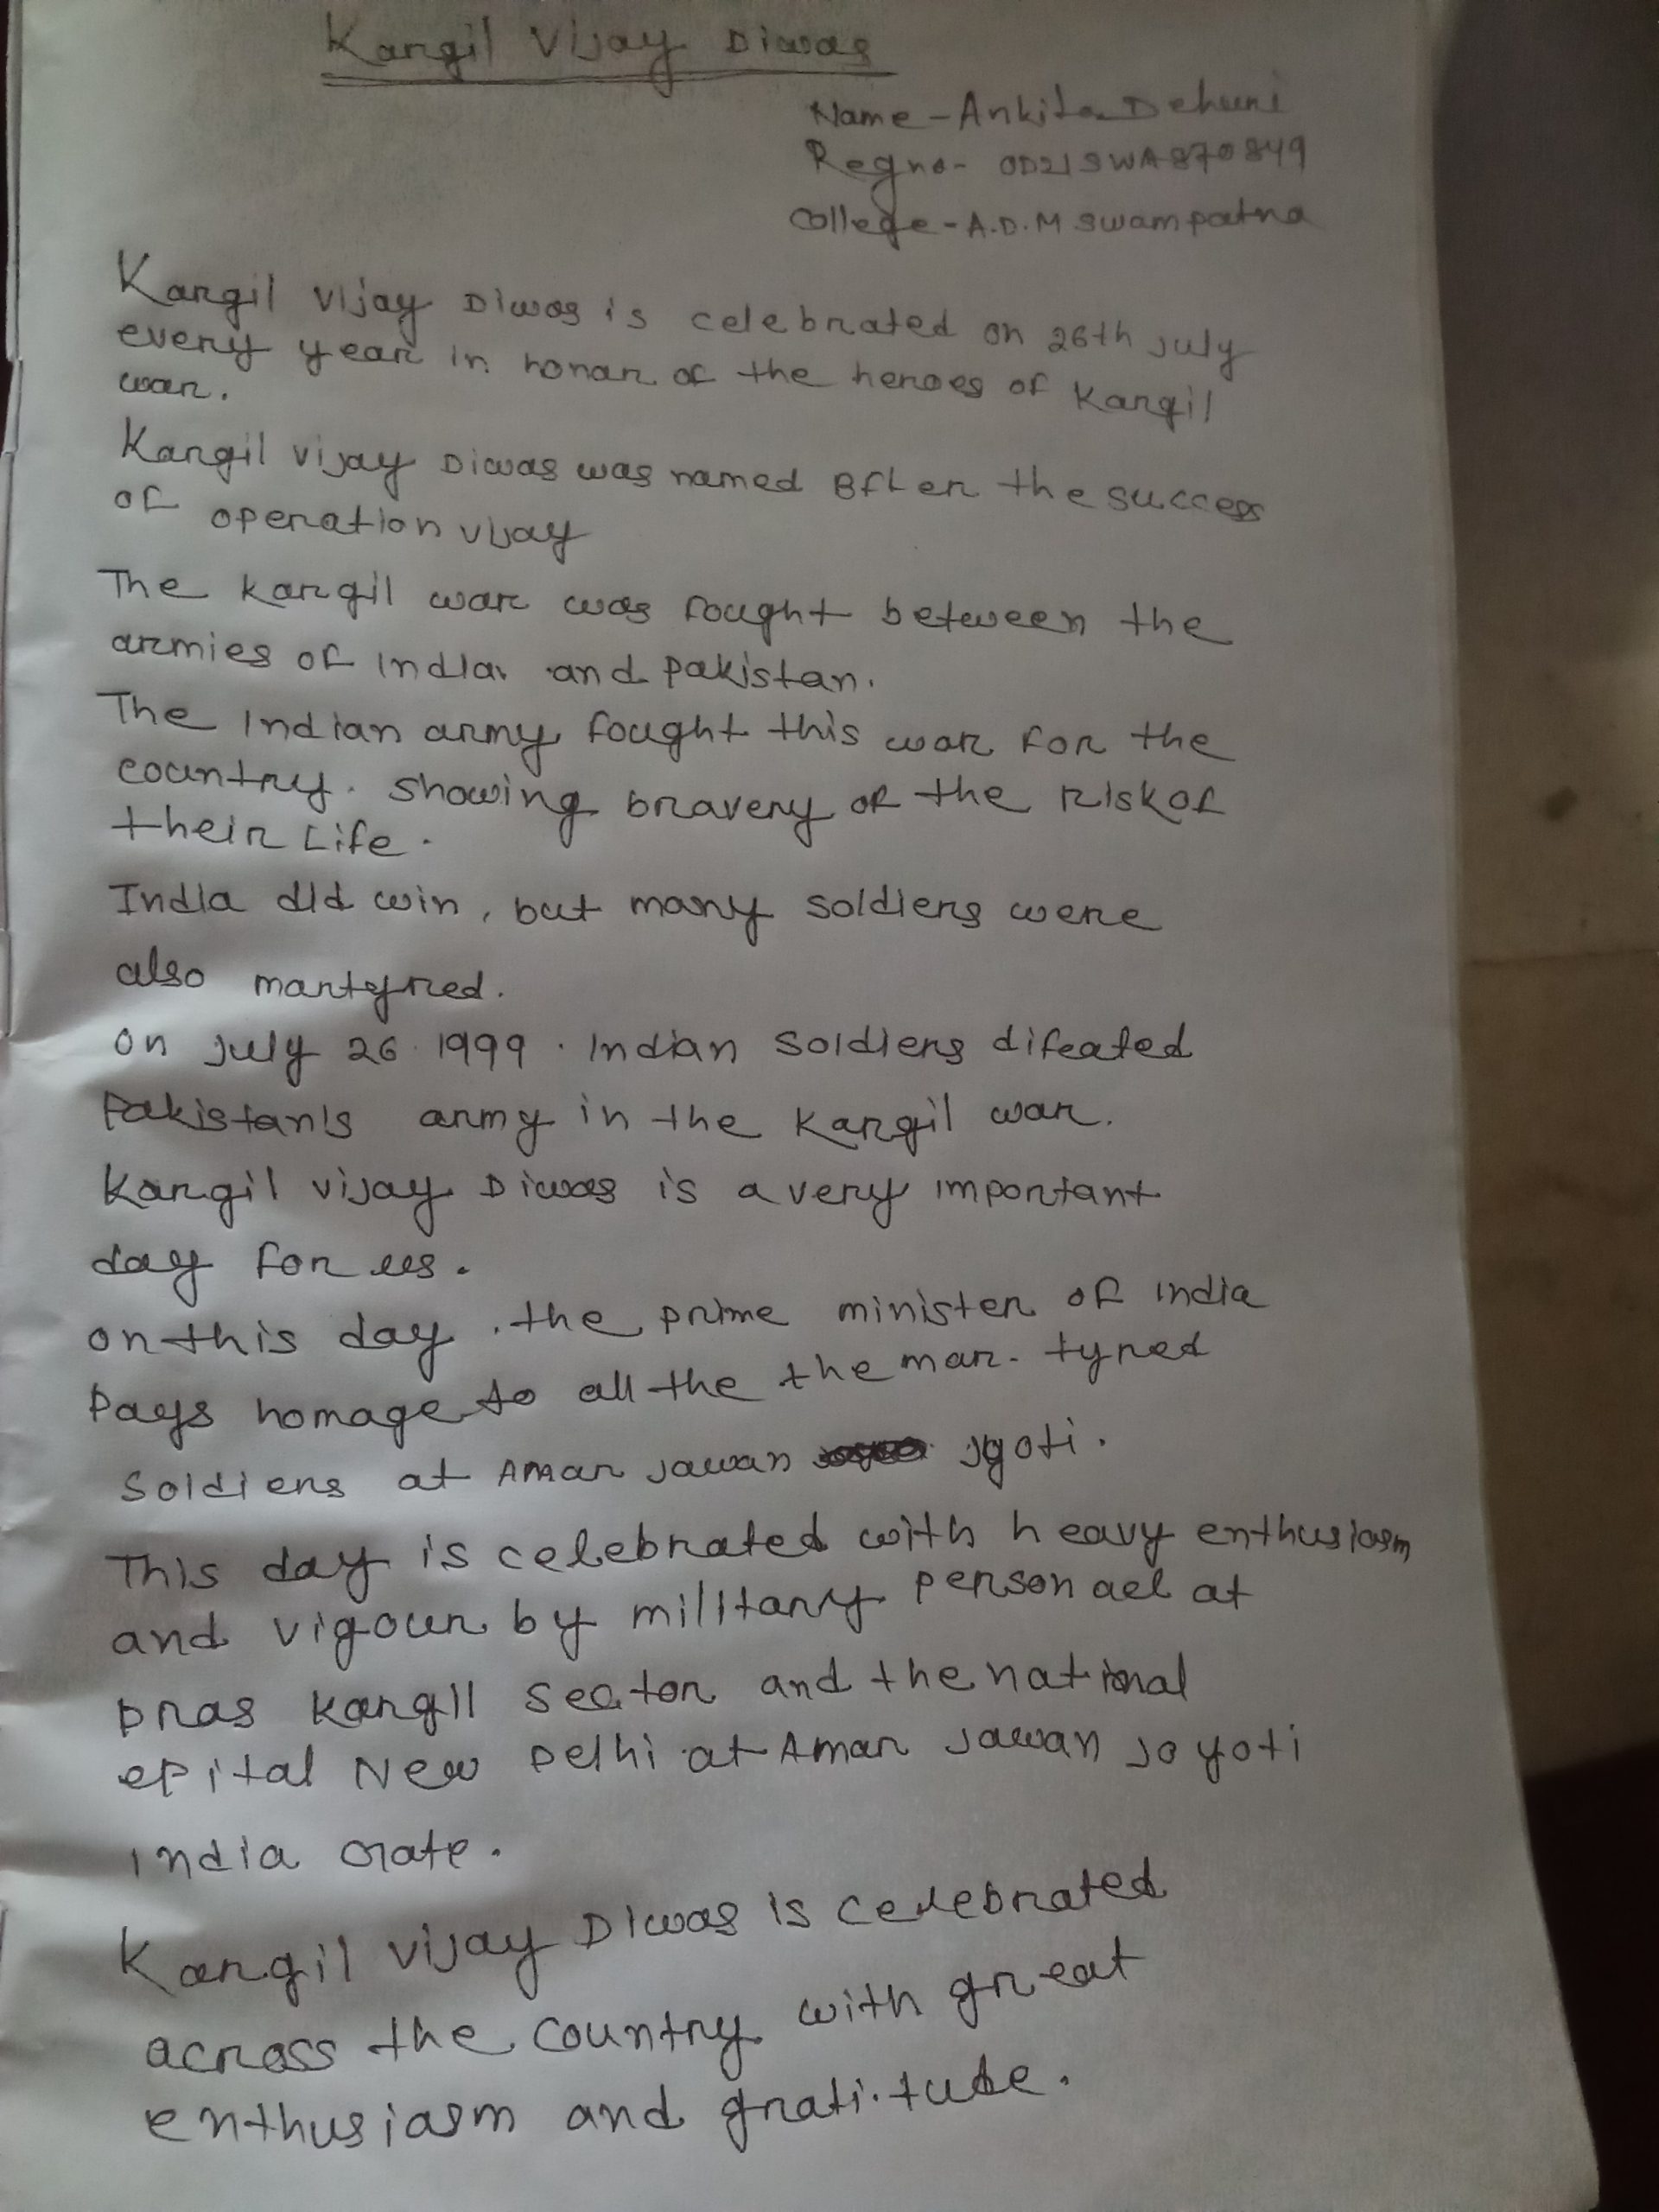 Kargil Vijay Diwas
Name - Ankita Dehuri
Regno - OD21SWA870849
College - A.D.M Swampatna
Kargil Vijay Diwas is celebrated on 26th July
every year in honar of the heroes of Kargil
war.
Kargil Vijay Diwas was named After the success
of operation vijay
The Kargil war was fought between the
armies of India and Pakistan.
The Indian army fought this war for the
country. Showing bravery of the risk of
their Life.
India did win, but many soldiers were
also martyred.
on July 26. 1999. Indian Soldiers difeated
Pakistan's army in the Kargil war.
Kargil Vijay Diwas is a very important
day for us.
on this day. the prime minister of India
Pays homage to all the the mar-tyred
Soldiers at Amar Jawan Jyoti.
This day is celebrated with heavy enthusiasm
and vigour by military personael at
Dras Kargil Sector and the national
epital New Delhi at Amar Jawan Joyoti
India Gate.
Kargil Vijay Diwas is celebrated
across the country with great
enthusiasm and gratitude.